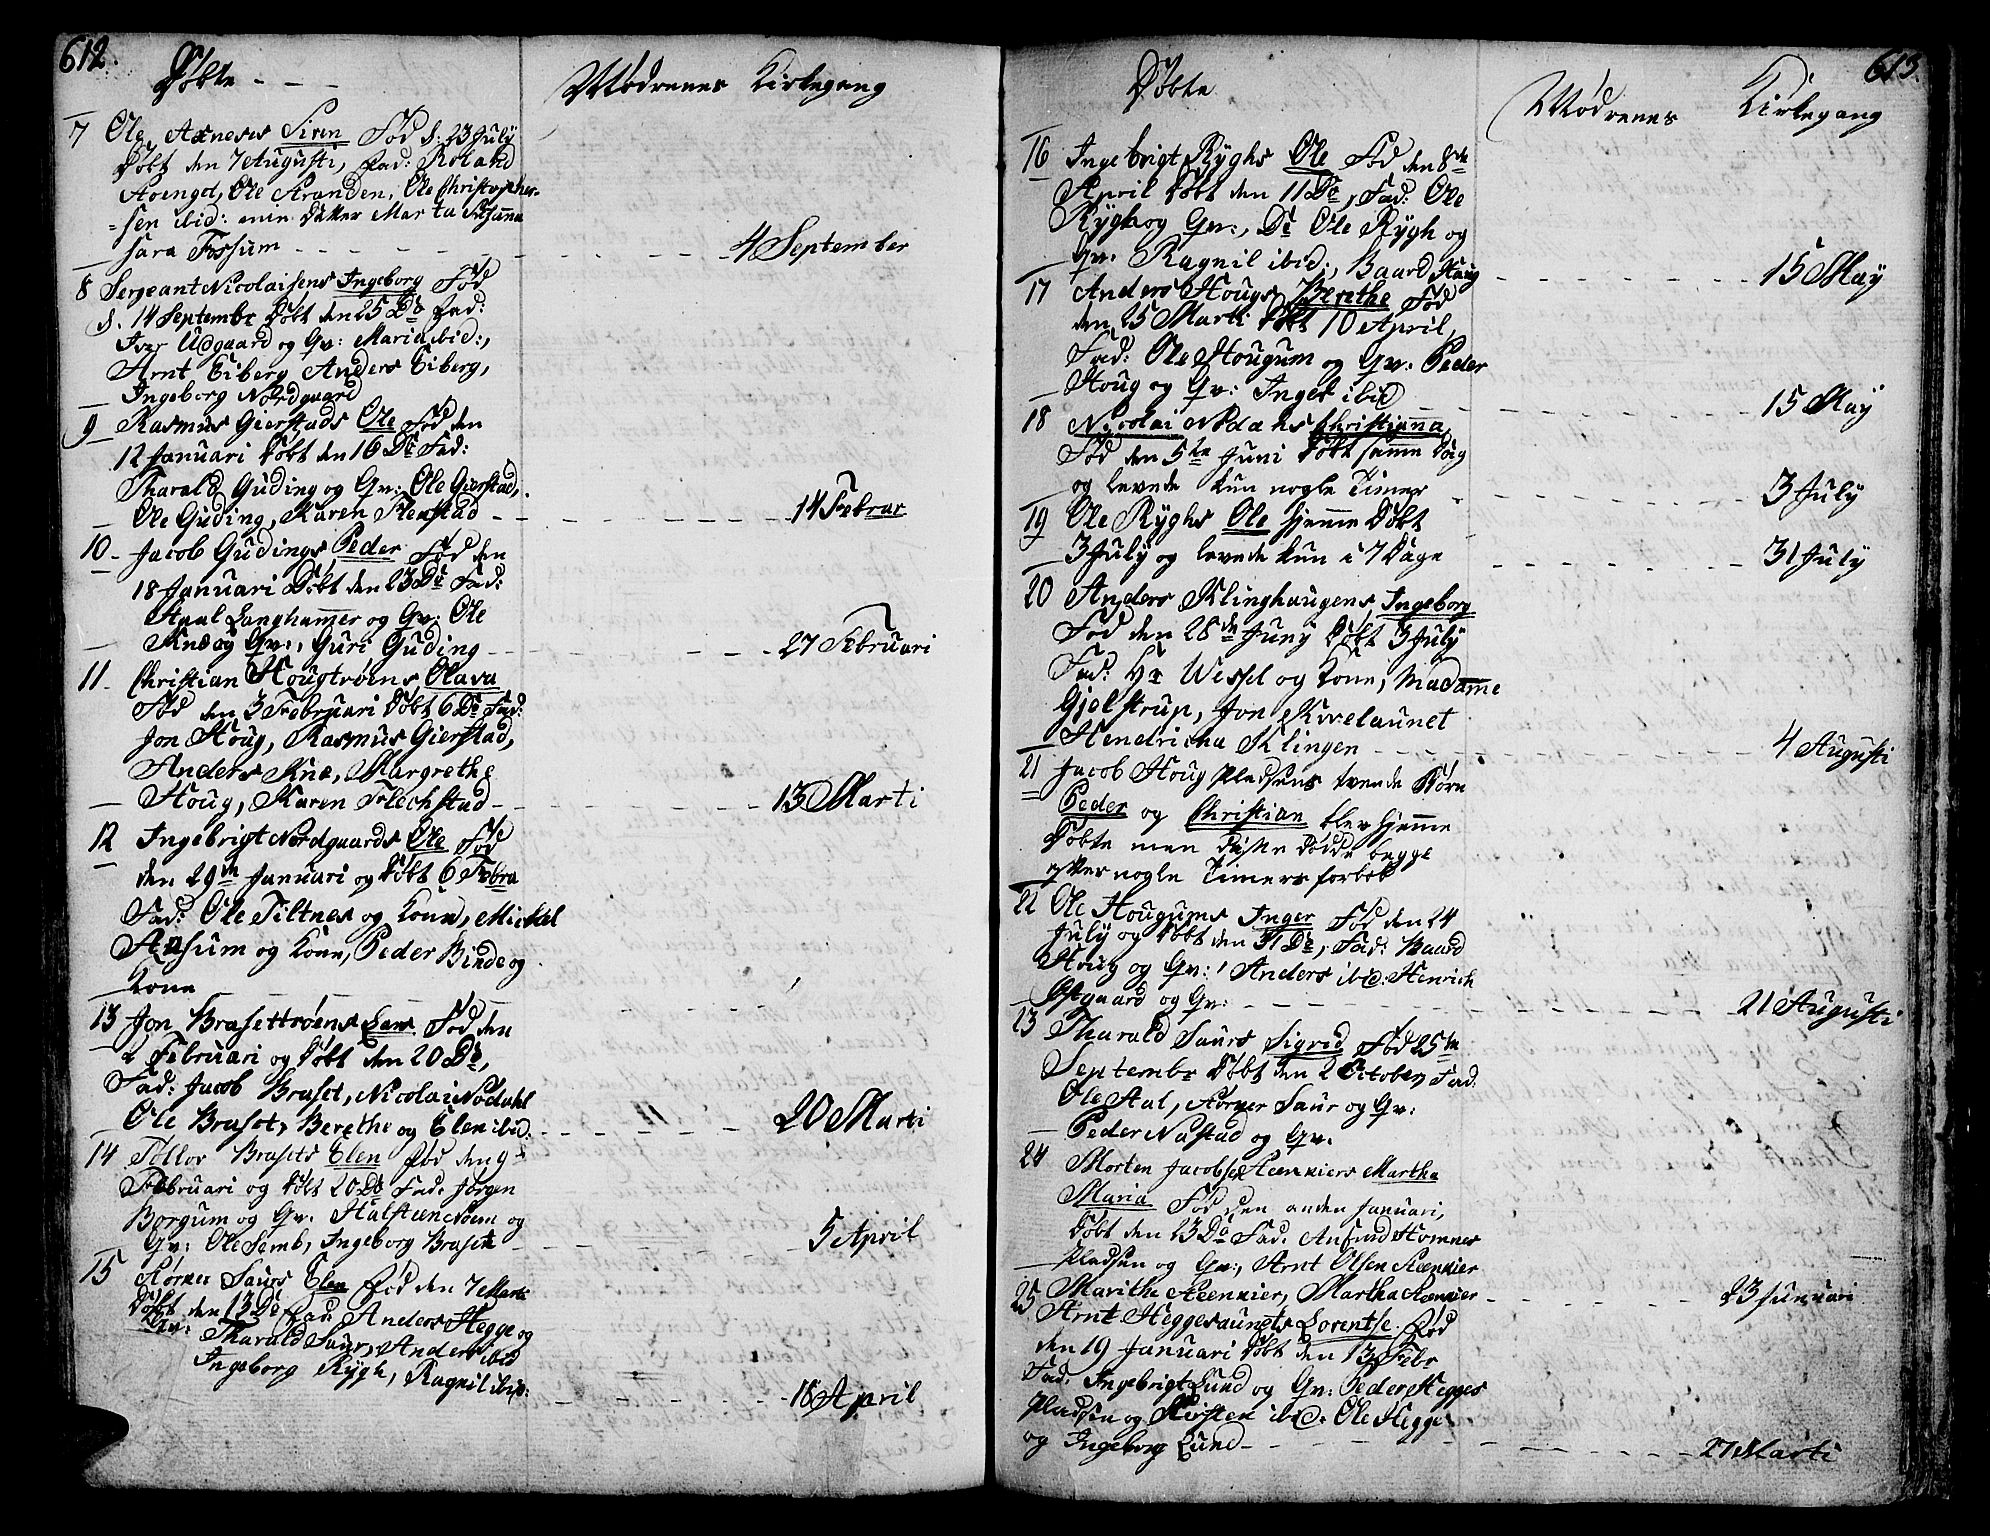 612.
Døbte - - -
Mødrenes Kirkegang
7 Ole Axneses Siren Fød d. 23 July
Døbt den 7 Augusti, Fad: Roland
Ole Aranden, Ole Christopher-
-sen ibid: min Datter Marta Susanna
Sara Fossum - - - 4 September
8 Sergeant Nicolaisens Ingeborg Fød
d. 14 Septembr Døbt den 25 Do Fad:
Iver Udgaard og Qv: Maria ibid:,
Arnt Eiberg Anders Eiberg,
Ingeborg Nordgaard
9 Rasmus Gierstads Ole Fød den
12 Januari Døbt den 16 Do Fad:
Tharald Guding og Qv: Ole Gierstad,
Ole Guding, Karen - - - 14 Februar
10 - Jacob Gudings Peder Fød den
18 Januari Døbt den 23 Do Fad:
Langhammer og Qv: Ole
og Qv:, Guri Guding - - - 27 Februari
11 - Christian Hougtrøens Olava
Fød den 3 Februari Døbt 6 Do Fad:
Jon Houg, Rasmus Gierstad,
Anders Margrethe
Houg, Karen Flechstad - - - 13 Marti
12 Ingebrigt Nordgaards Ole Fød
den 29de Januari og Døbt 6 Febra
Fad: Ole Tiltnes og Kone, Mickel
Aasum og Kone, Peder Binde og
Kone - - -
13 Jon Brasettrøens Lars Fød den
2 Februari og Døbt den 20 Do,
Fad: Jacob Braset, Nicolai Nødahl
Ole Braset, Berethe og Elen ibid: - - - 20 Marti
14 Tollov Brasets Elen Fød den 9
Februari og Døbt 20 Do Fad: Jørgen
Borgum og Qv: Halsteen Noem og
Qv: Ole Semb, Ingeborg Braset - - - 5 April
15 Kørner Saurs Elen Fød den 7 Marti
Døbt den 13 Do Fad: Anders Hegge og
Qv: Tharald Saur, Anders ibid
Ingeborg Rygh, Ragnil ibid: - - - 18 April
613.
Døbte
Mødrenes Kirkegang
16 Ingebrigt Ryghs Ole Fød den 8de
April Døbt den 11 Do, Fad: Ole
Rygh og Qv:, Do Ole Rygh og
Qv: Ragnil ibid:, Baard Houg - - - 15 May
17 Anders Hougs Berethe Fød
den 25 Marti Døbt 10 April
Fad: Ole Hougum og Qv: Peder
Houg og Qv: Inger ibid - - - 15 May
18 Nicolai Nødahls Christianna
Fød den 5te Juni Døbt samme Dag
og levede kun nogle Timer - - - 3 July
19 Ole Ryghs Ole hjemme Døbt
3 July og levede kun i 7 Dage - - - 31 July
20 Anders Klinghaugens Ingeborg
Fød den 28de Juny Døbt 3 July
Fad: Hr Wessel og Kone, Madamme
Gjelstrup, Jon Kvelaunet
Hendricha Klingen - - - 4 Augusti
21 Jacob Houg Pladsens tvende Børn
Peder og Christian blev hjemme
Døbte men døde begge
efter nogle Timers forløb
22 Ole Hougums Inger Fød den 24
July og Døbt den 31 Do, Fad: Baard
Houg og Qv:, Anders ibid: Henrich
Østgaard og Qv: - - - 21 Augusti
23 Tharald Saurs Sigrid Fød 25de
Septembr Døbt den 2 October Fad:
Ole Aal, Kørner Saur og Qv:
Peder Nastad og Qv:
24 Morten Jacobsen Aenniers Martha
Maria Fød den anden Januari,
Døbt den 23 Do Fad: Anfind
Pladsen og Qv:, Arnt Olsen Aennier
Marithe Aennier, Martha Aennier - - - 23 Januari
25 Arnt Heggesaunets Lorentse Fød
den 19 Januari Døbt den 13 Febr
Fad: Ingebrigt Lund og Qv: Peder Hegges
Pladsen og Kirsten ibid: Ole Hegge
og Ingeborg Lund - - - 27 Marti